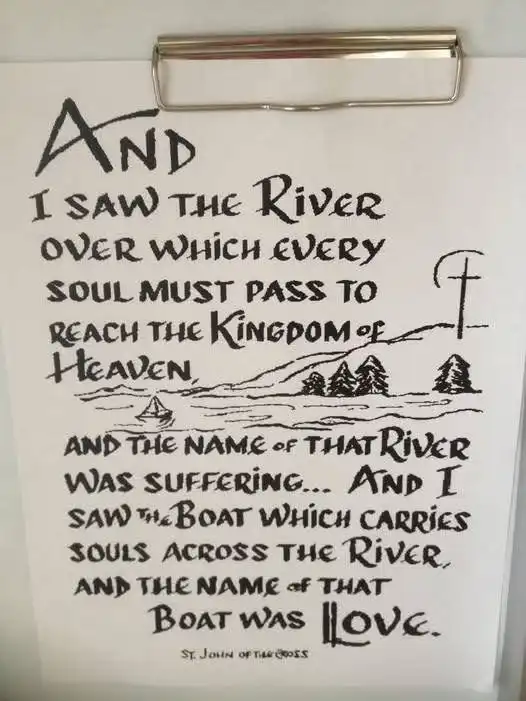 AND
I SAW THE RIVER
OVER WHICH EVERY
SOUL MUST PASS TO
REACH THE KINGDOM OF
HEAVEN,
AND THE NAME OF THAT RIVER
WAS SUFFERING... AND I
SAW THE BOAT WHICH CARRIES
SOULS ACROSS THE RIVER,
AND THE NAME OF THAT
BOAT WAS LOVE.
ST. JOHN OF THE CROSS